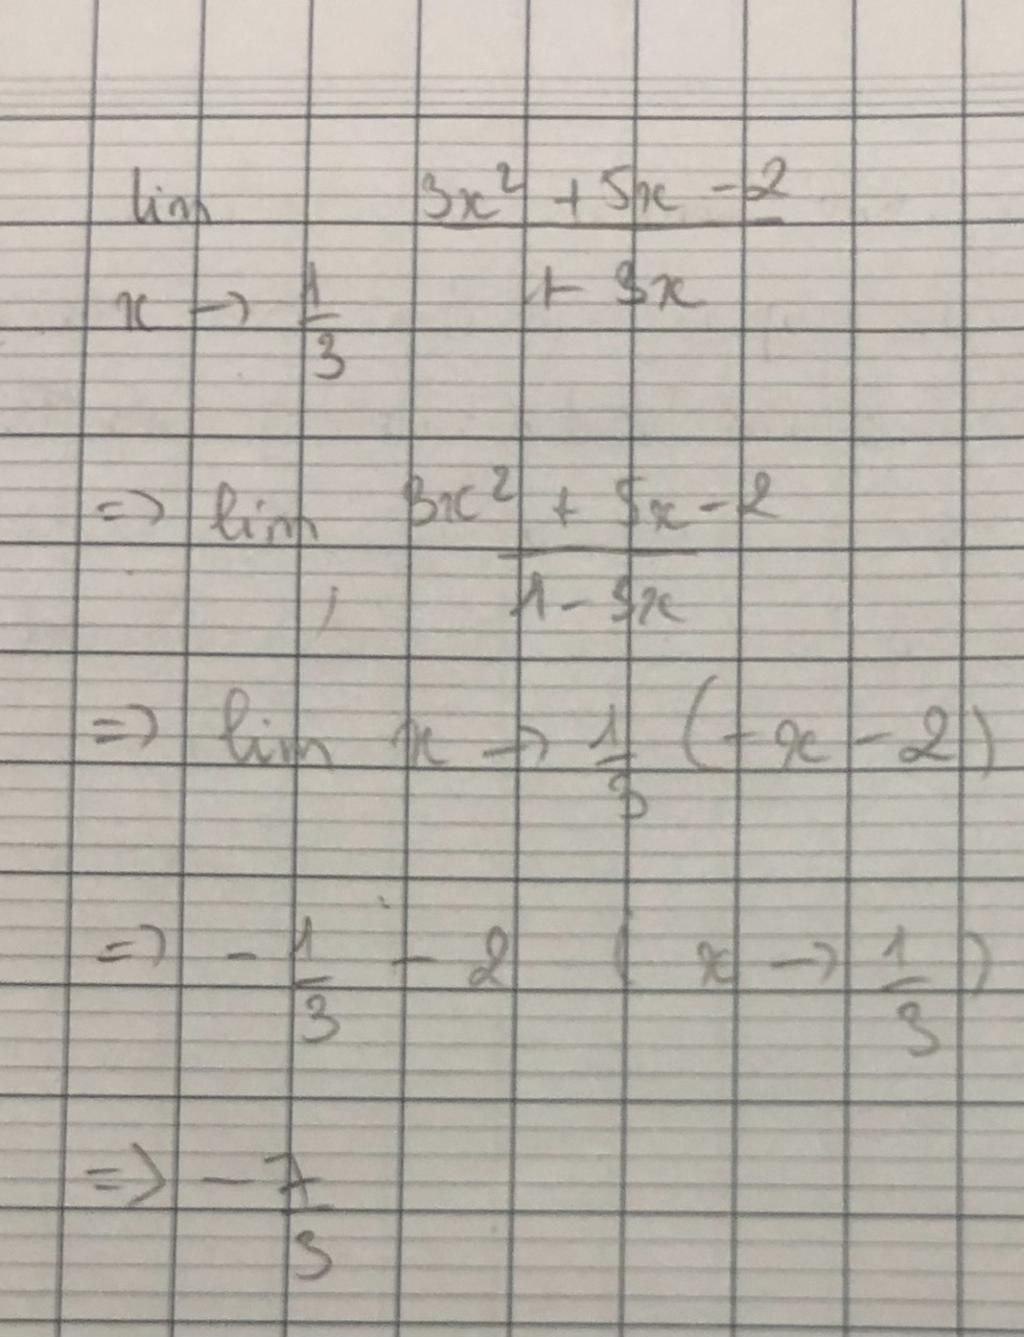 lim 3x² + 5x - 2
x → 1/3 + 3x
=> lim 3x² + 5x - 2
1 - 3x
=> lim x → 1/3 (- x - 2)
=> - 1/3 - 2 ( x → 1/3 )
=> - 7/3